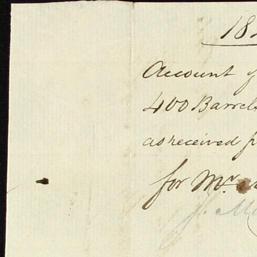 18
Account
400 Barrel
as received
for Mr.